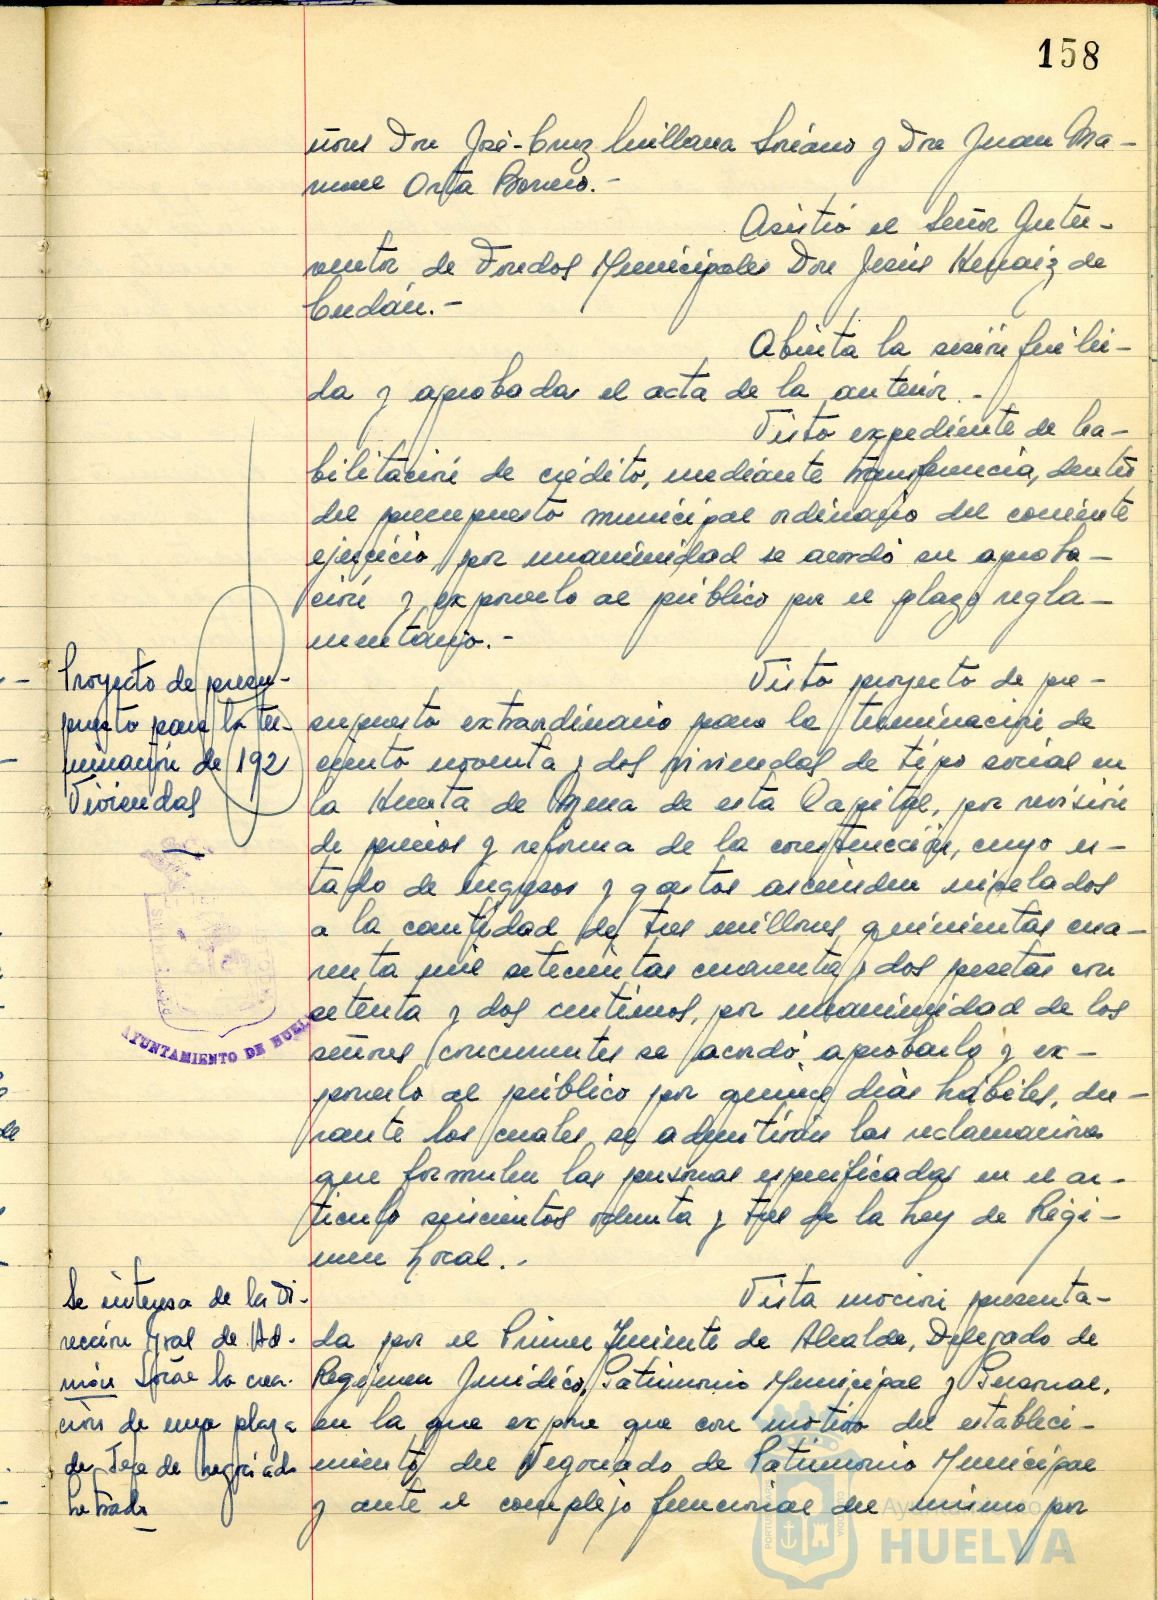 158
ñores Don José-Cruz Cuillana Soriano y Don Juan Ma-
nuel Orta Borrero.-
Asistió el Señor Inter-
ventor de Fondos Municipales Don Jesús Hernaiz de
Cendán.-
Abierta la sesión fué lei-
da y aprobada el acta de la anterior.-
Visto expediente de ha-
bilitación de crédito, mediante transferencia, dentro
del presupuesto municipal ordinario del corriente
ejercicio, por unanimidad se acordó su aproba-
ción y exponerlo al público por el plazo regla-
mentario.-
Proyecto de presu-
puesto para la ter-
minación de 192
Viviendas
Visto proyecto de pre-
supuesto extraordinario para la terminación de
ciento noventa y dos viviendas de tipo social en
la Huerta de Mena de esta Capital, por revisión
de precios y reforma de la construcción, cuyo es-
tado de ingresos y gastos ascienden nivelados
a la cantidad de tres millones quinientas cua-
renta mil setecientas cuarenta y dos pesetas con
setenta y dos centimos, por unanimidad de los
señores concurrentes se acordó aprobarlo y ex-
ponerlo al público por quince dias hábiles, du-
rante los cuales se admitirán las reclamaciones
que formulen las personas especificadas en el ar-
ticulo seiscientos ochenta y tres de la Ley de Régi-
men Local.-
AYUNTAMIENTO DE HUELVA
Se interesa de la Di-
rección Gral de Ad-
món Local la crea-
ción de una plaza
de Jefe de negociado
Letrado
Vista moción presenta-
da por el Primer Teniente de Alcalde, Delegado de
Regimen Juridico, Patrimonio Municipal y Personal,
en la que expone que con motivo del estableci-
miento del Negociado de Patrimonio Municipal
y ante el complejo funcional del mismo por
Ayuntamiento de
HUELVA